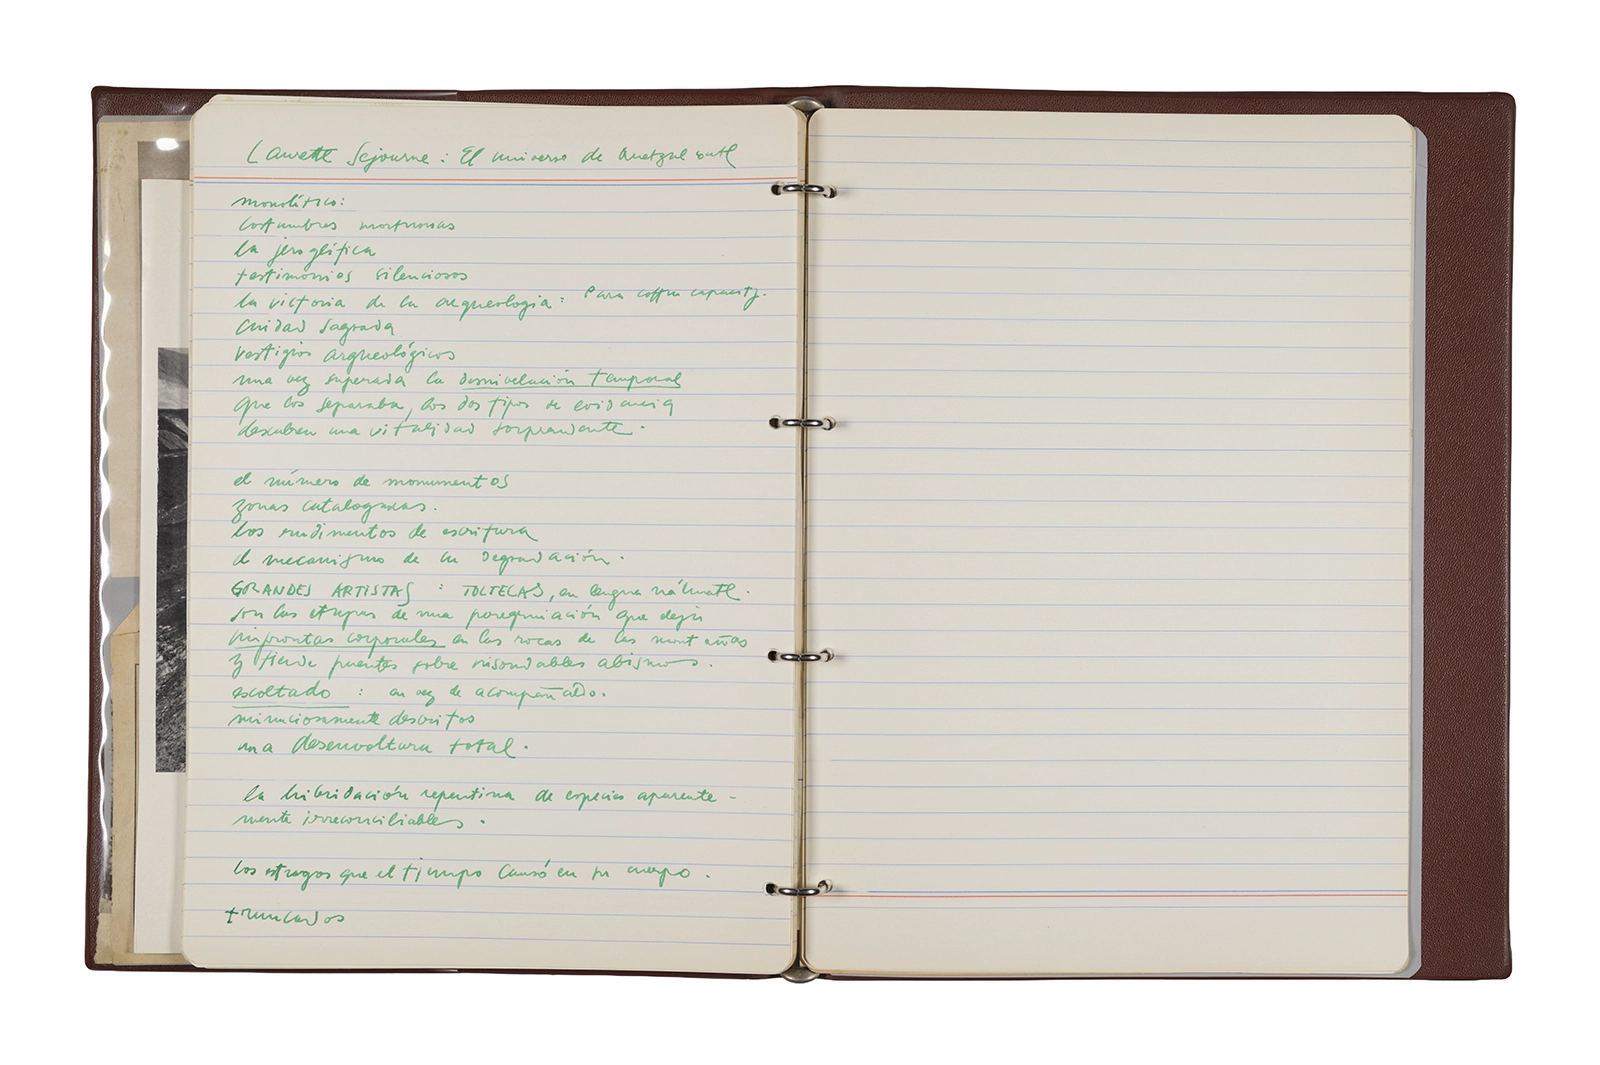 Laurette Sejourne: El universo de Quetzalcoatl
monolítico:
costumbres mortuorias
la jeroglífica
testimonios silenciosos
la victoria de la arqueologia: Para
Ciudad Sagrada
vestigios arqueológicos
una vez superada la desnivelación temporal
que los separaba, los dos tipos de evidencia
descubren una vitalidad sorprendente.
el número de monumentos
zonas catalogadas.
los rudimentos de escritura
el mecanismo de la Degradación.
GRANDES ARTISTAS : TOLTECAS, en lengua náhuatl.
son las etapas de una peregrinación que dejó
improntas corporales en las rocas de las montañas
y tiende puentes sobre insondables abismos.
escoltado : en vez de acompañado.
minuciosamente descritos
una desenvoltura total.
la hibridación repentina de especies aparente-
mente irreconciliables.
los estragos que el tiempo causó en su cuerpo.
truncados